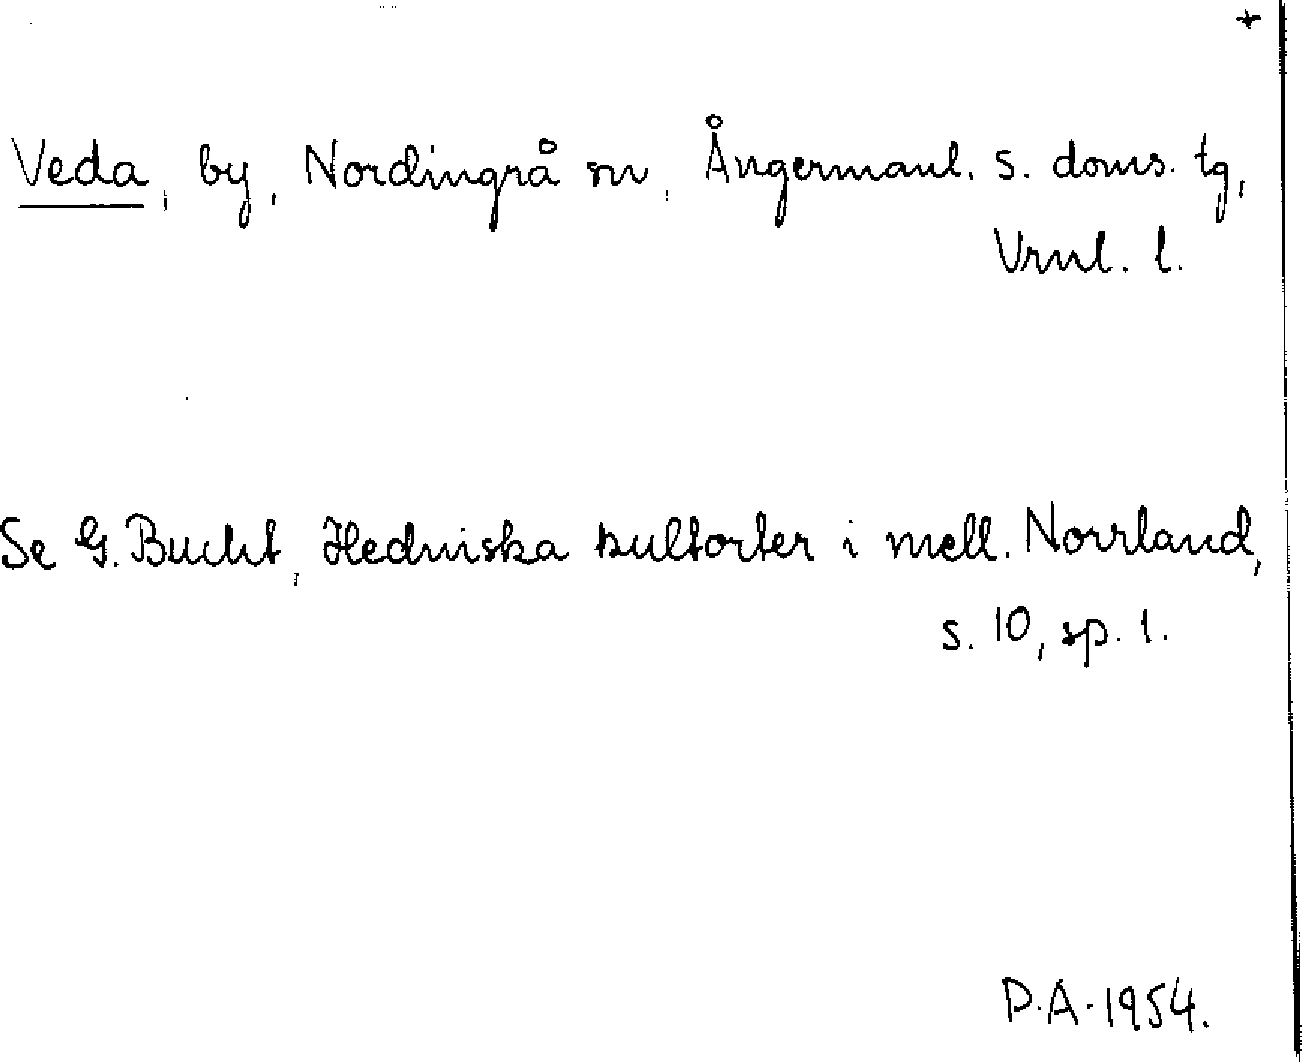 +
Veda, by, Nordingrå sn, Ångermanl. s. doms. tg,
Vrnl. l.
Se G. Bucht, Hedniska kultorter i mell. Norrland,
s. 10, sp. 1.
P.A. 1954.